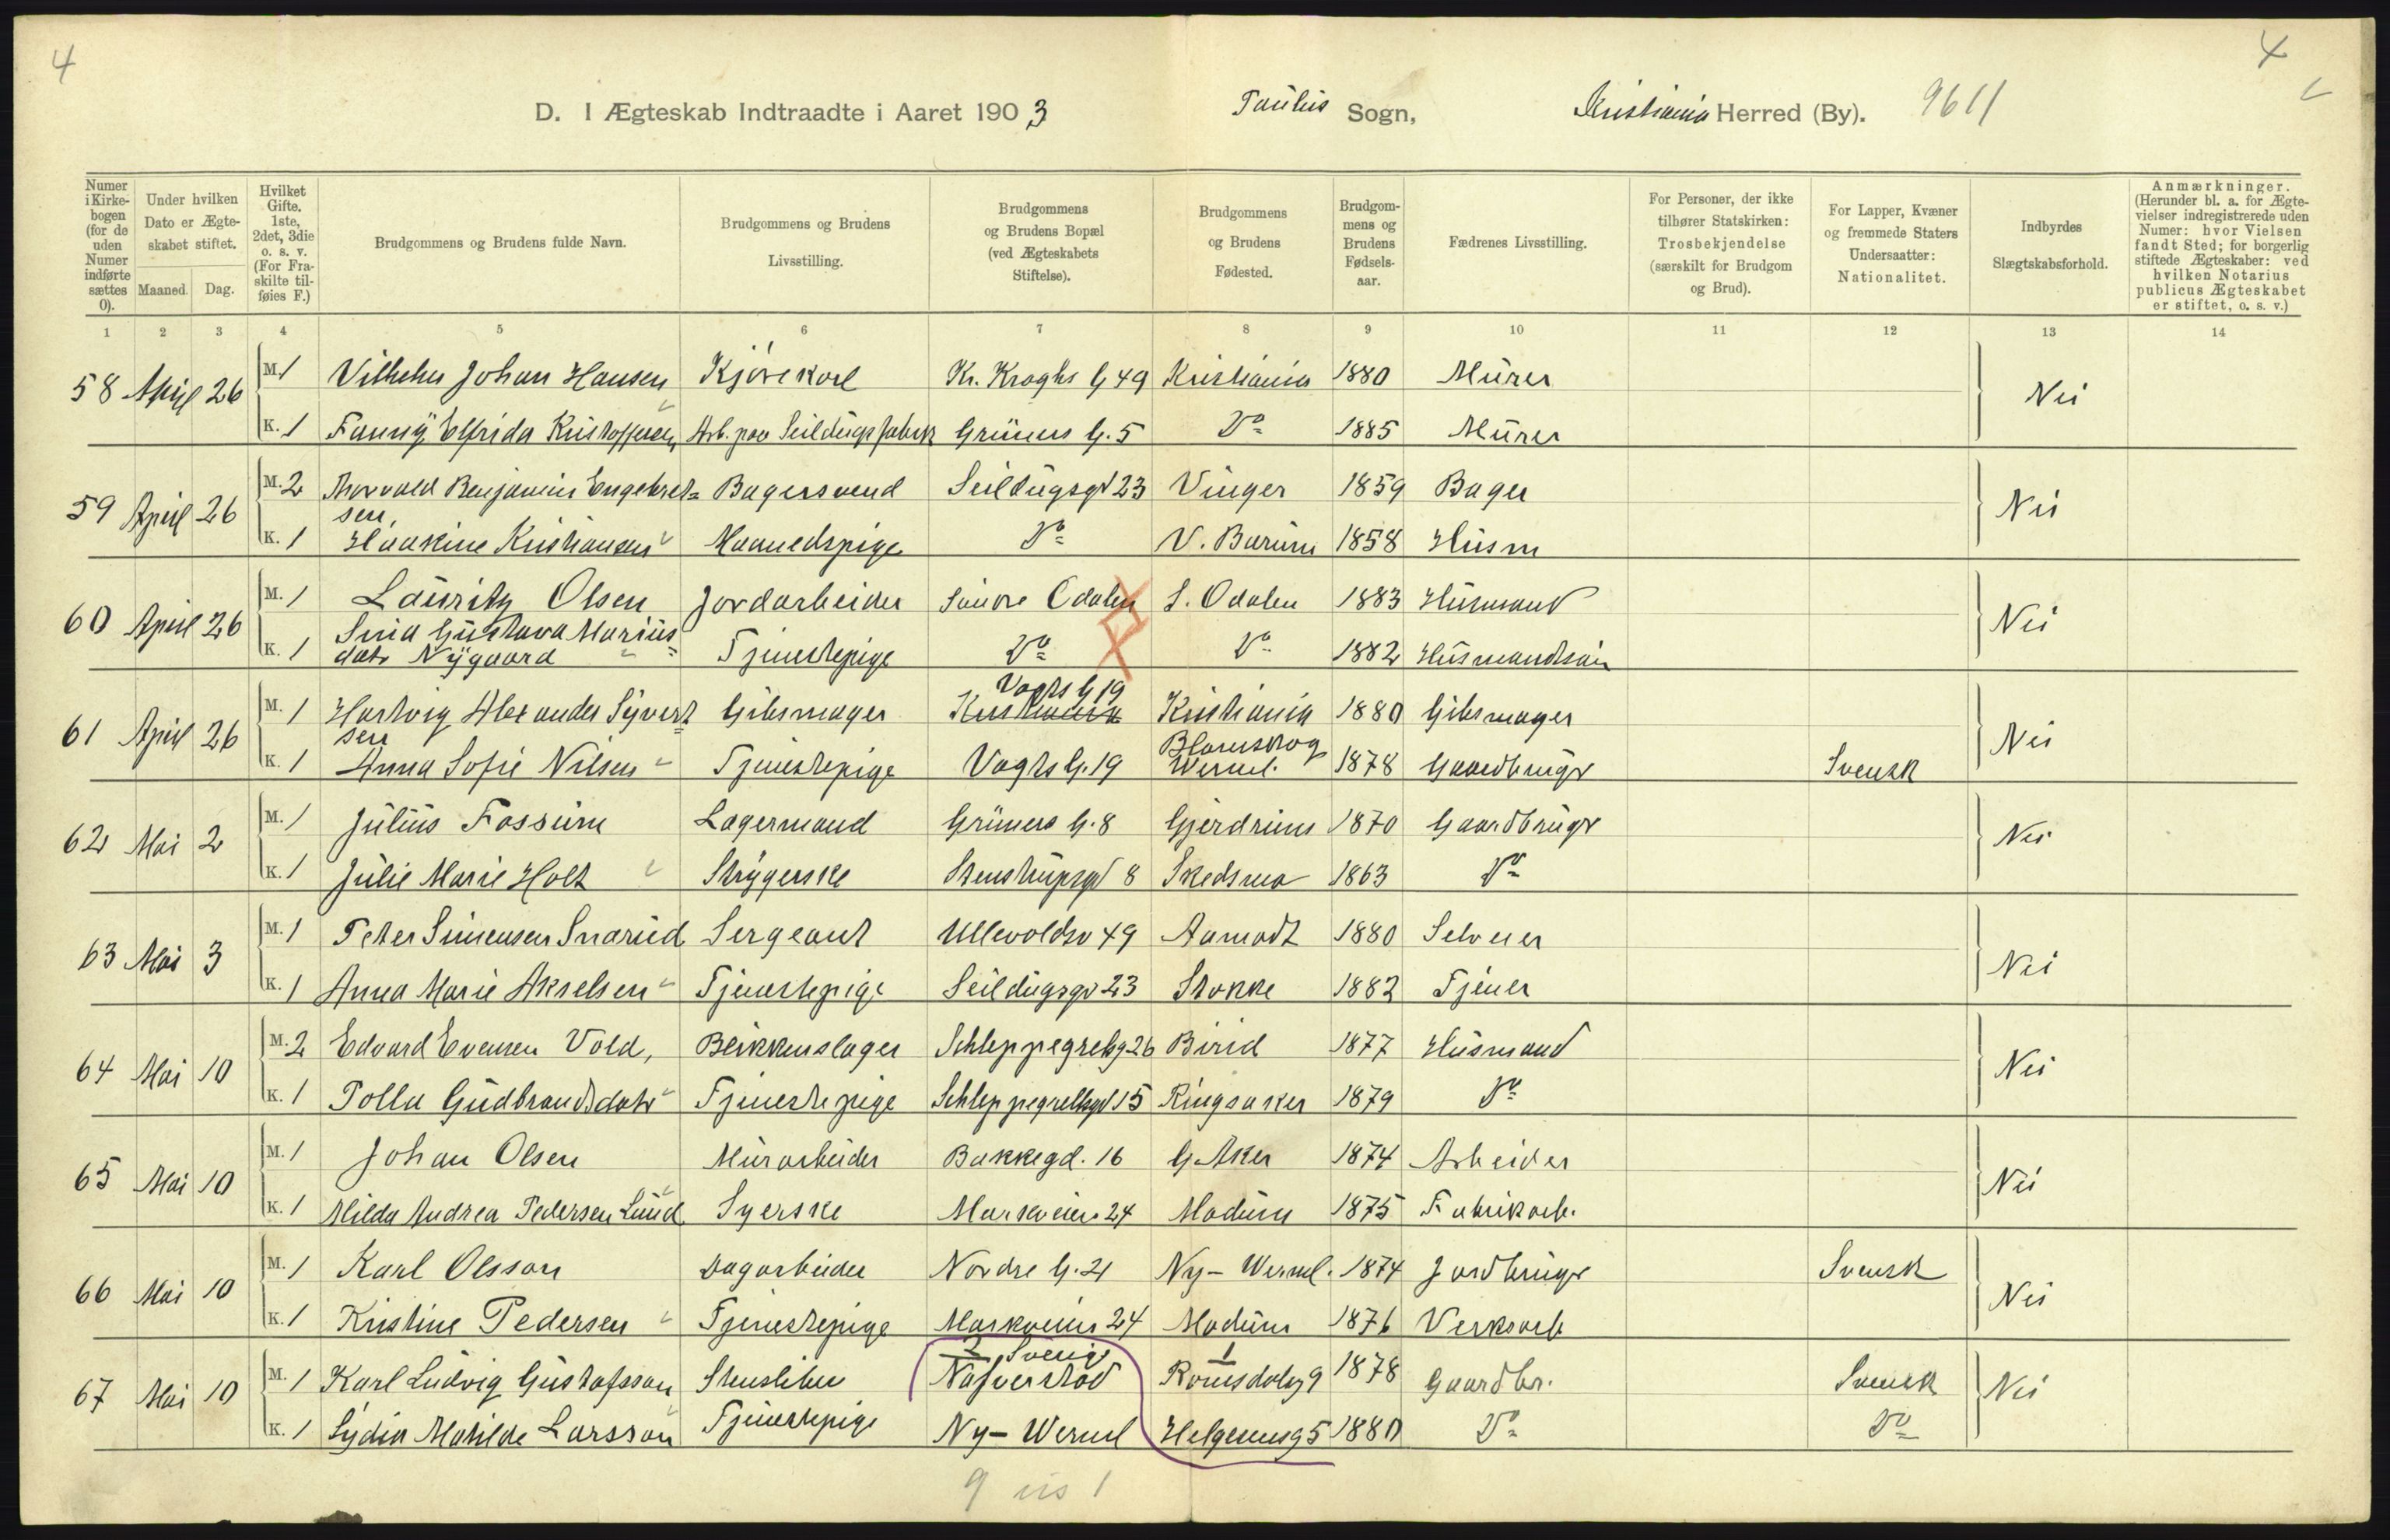 4
4
D. I Ægteskab Indtraadte i Aaret 1903 Paulus Sogn, Kristiania Herred (By). 9611
Numer i Kirkebogen (for de uden Numer indførte sættes 0).
Under hvilken Dato er Ægteskabet stiftet.
Maaned. Dag.
Hvilket Gifte. 1ste, 2det, 3die o. s. v. (For Fraskilte tilføies F.)
Brudgommens og Brudens fulde Navn.
Brudgommens og Brudens Livsstilling.
Brudgommens og Brudens Bopæl (ved Ægteskabets Stiftelse).
Brudgommens og Brudens Fødested.
Brudgommens og Brudens Fødselsaar.
Fædrenes Livsstilling.
For Personer, der ikke tilhører Statskirken: Trosbekjendelse (særskilt for Brudgom og Brud).
For Lapper, Kvæner og fremmede Staters Undersaatter: Nationalitet.
Indbyrdes Slægtskabsforhold.
Anmærkninger. (Herunder bl. a. for Ægtevielser indregistrerede uden Numer: hvor Vielsen fandt Sted; for borgerlig stiftede Ægteskaber: ved hvilken Notarius publicus Ægteskabet er stiftet, o. s. v.)
1 2 3 4 5 6 7 8 9 10 11 12 13 14
58 April 26 M. 1 Vilhelm Johan Hansen Kjørekarl Kr. Kroghs G 49 Kristiania 1880 Murer Nei
K. 1 Fanny Elfrida Kristoffersen Arb. paa Seildugsfabrik Grüners G. 5 Do 1885 Murer
59 April 26 M. 2 Thorvald Benjamin Engebret= Bagersvend Seildugsgd 23 Vinger 1859 Bager Nei
sen,
K. 1 Haakine Kristiansen Maanedspige Do V. Bærum 1858 Husm
60 April 26 M. 1 Lauritz Olsen Jordarbeider Søndre Odalen S. Odalen 1883 Husmand Nei
Gustava Marius=
K. 1 datr Nygaard Tjenestepige Do Do 1882 Husmandssøn
Vogts G 19
61 April 26 M. 1 Hartvig Alexander Syvert= Gibsmager Kristiania Kristiania 1880 Gibsmager Nei
sen Blomskog
K. 1 Anna Sofie Nilsen Tjenestepige Vogts G. 19 Werml. 1878 Gaardbruger Svensk
62 Mai 2 M. 1 Julius Fossum Lagermand Grüners G. 8 Gjerdrum 1870 Gaardbruger Nei
K. 1 Julie Marie Holt Strygerske Stenstrupsgd 8 Skedsmo 1863 Do
63 Mai 3 M. 1 Peter Simensen Snarud Sergeant Ullevoldsv 49 Aamodt 1880 Selveier Nei
K. 1 Anna Marie Akselsen Tjenestepige Seildugsgd 23 Stokke 1882 Tjener
64 Mai 10 M. 2 Edvard Evensen Vold, Blikkenslager Schleppegrelsg 26 Birid 1877 Husmand Nei
K. 1 Polla Gudbrandsdatr Tjenestepige Schleppegrellsgd 15 Ringsaker 1879 Do
65 Mai 10 M. 1 Johan Olsen Murarbeider Bakkegd. 16 G. Aker 1874 Arbeider Nei
K. 1 Milda Andrea Pedersen Lund Syerske Markveien 24 Modum 1875 Fabrikarb.
66 Mai 10 M. 1 Karl Olsson Dagarbeider Nordre G. 21 Ny- Werml. 1874 Jordbruger Svensk Nei
K. 1 Kristine Pedersen Tjenestepige Markveien 24 Modum 1876 Verksarb
2 Sverige 1
67 Mai 10 M. 1 Karl Ludvig Gustafsson Stensliber Nafverstad Romsdalsg 9 1878 Gaardbr. Svensk Nei
K. 1 Lydia Matilde Larsson Tjenestepige Ny- Werml Helgesensg 5 1880 Do Do
9 1